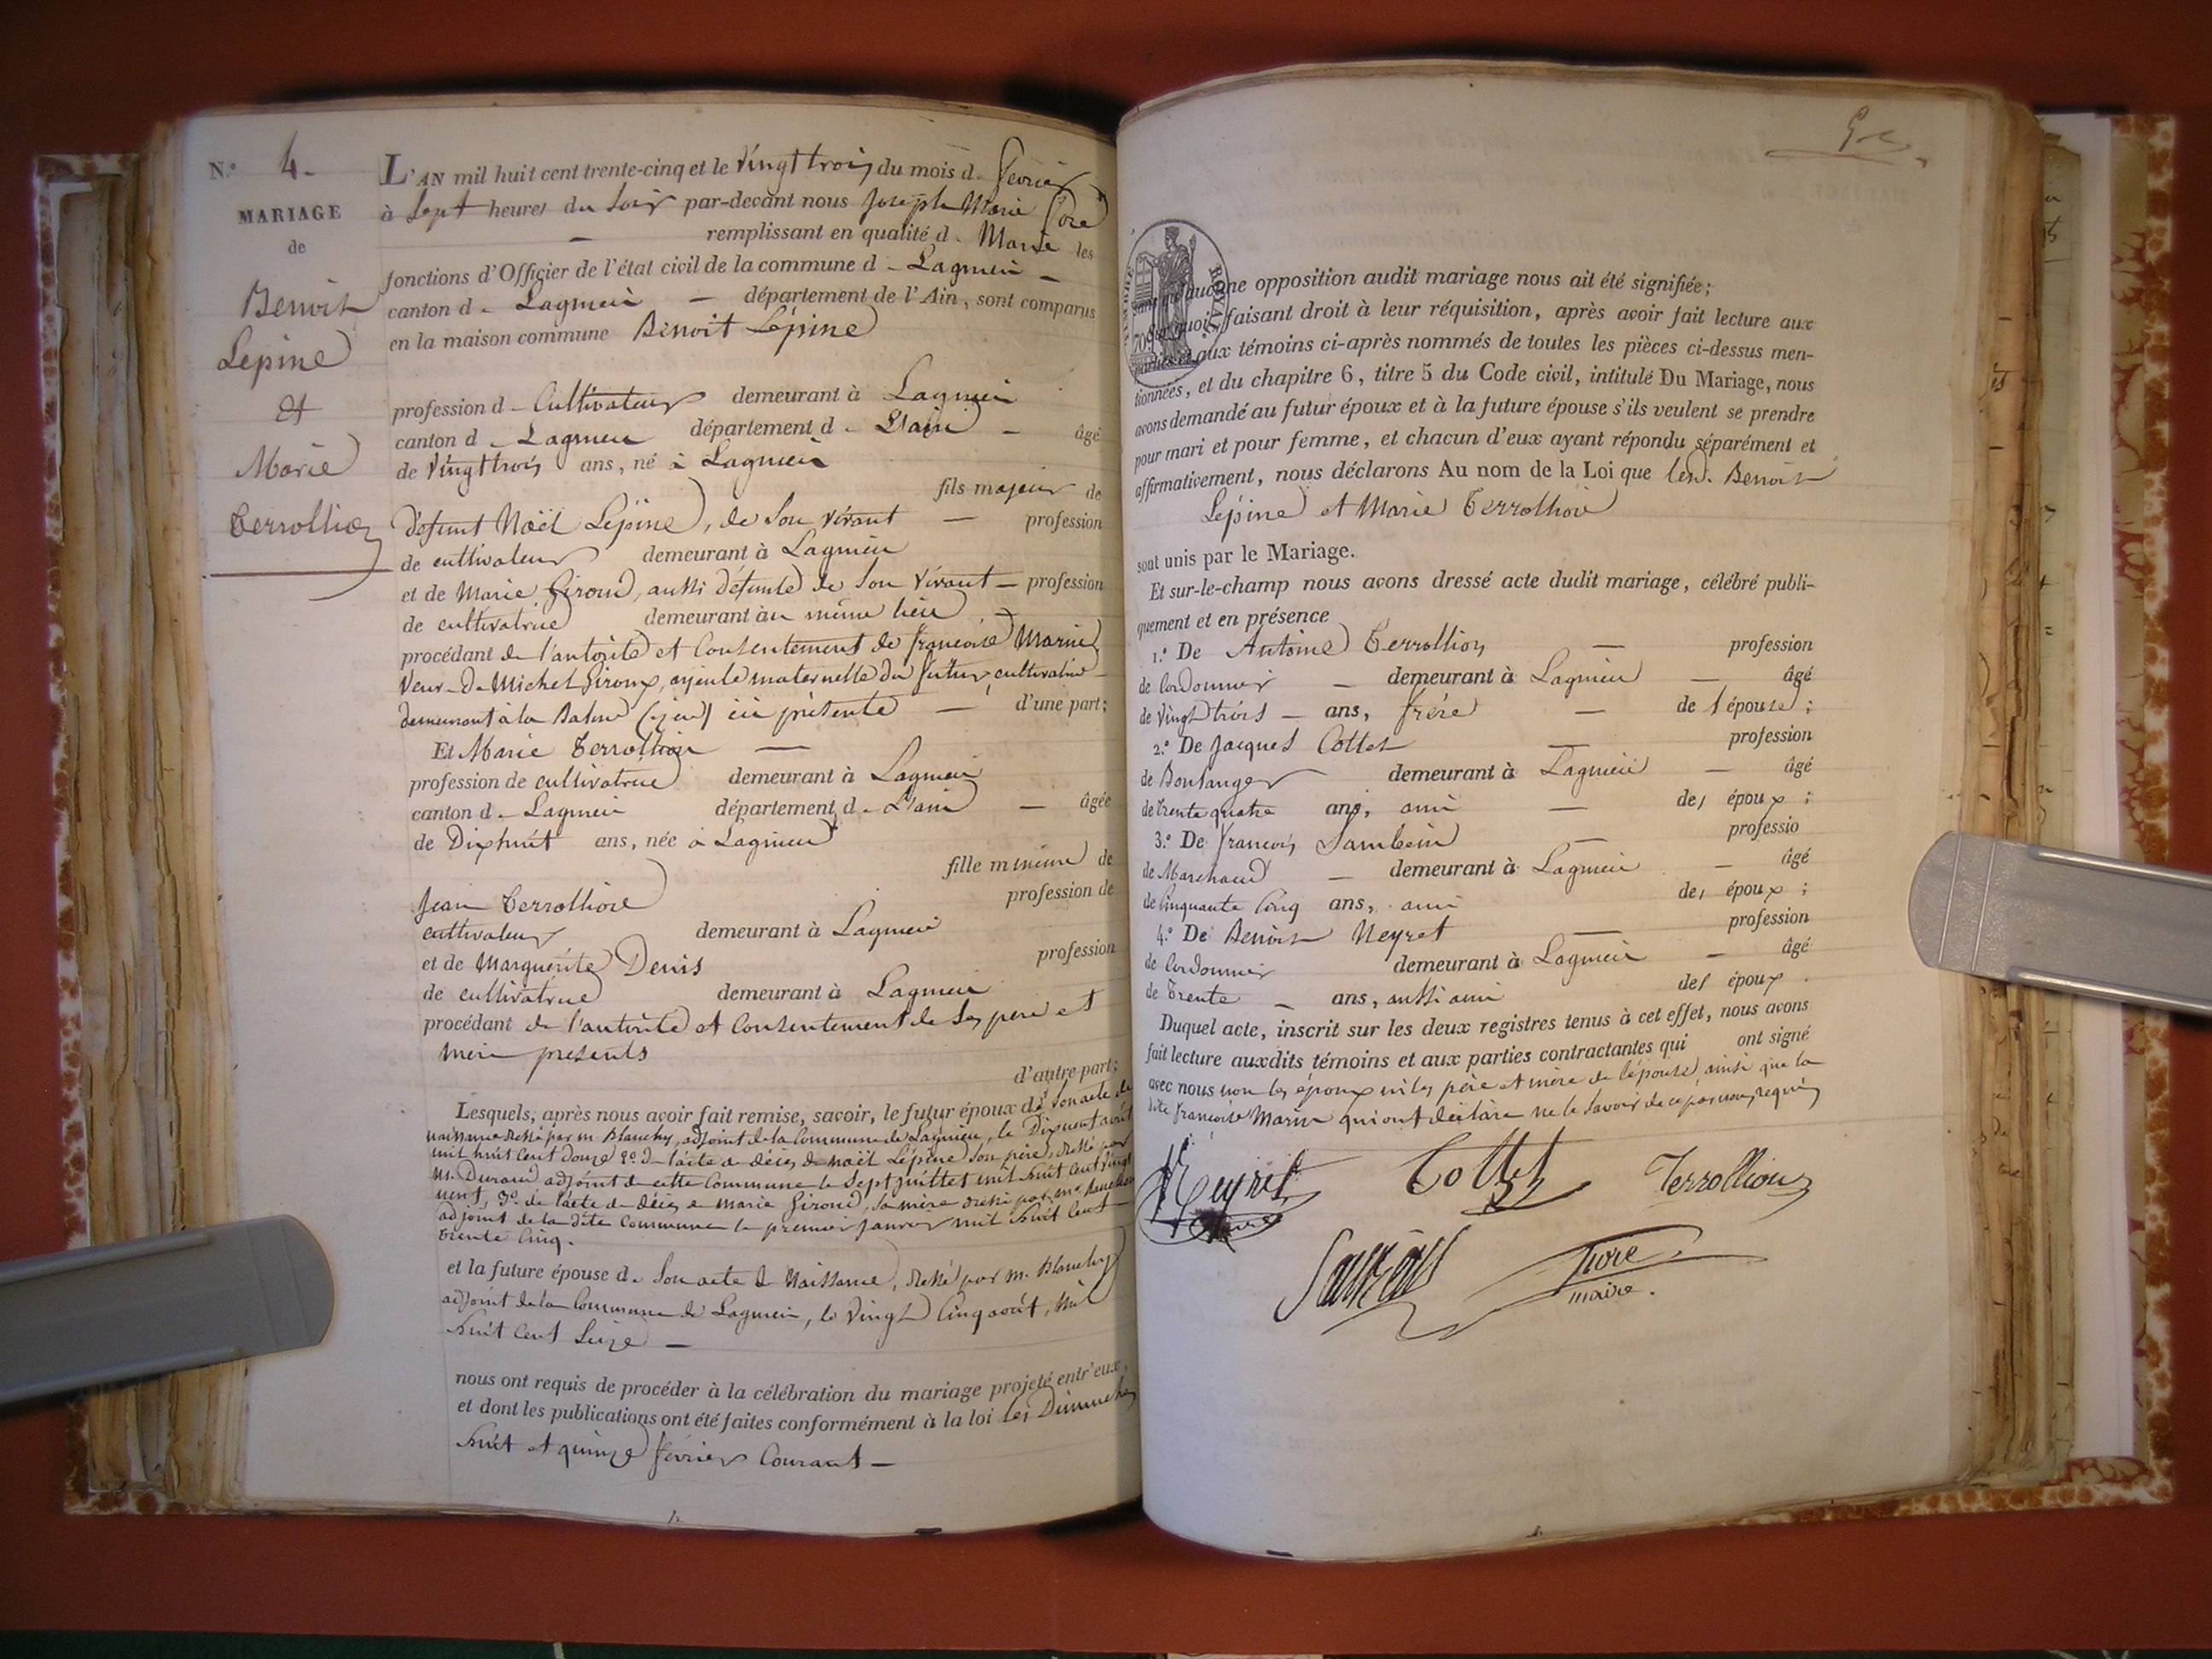 N.° 4.
MARIAGE
de
Benoit
Lepine
et
Marie
Terrollion
L'AN mil huit cent trente-cinq et le Vingt trois du mois d. fevrier
à Sept heures du Soir par-devant nous Joseph Marie
remplissant en qualité d. Maire les
fonctions d'Officier de l'état civil de la commune d - Lagnieu -
canton d - Lagnieu - département de l'Ain, sont comparus
en la maison commune Benoit Lépine
profession d - Cultivateur demeurant à Lagnieu
canton d - Lagnieu département d - L'ain - âgé
de Vingt trois ans, né à Lagnieu
fils majeur de
défunt Noël Lépine, de Son vivant - profession
de cultivateur demeurant à Lagnieu
et de Marie Giroud, aussi défunte de Son vivant - profession
de cultivatrice demeurant au même lieu
procédant de l'autorité et Consentement de françoise Marin
Veuve De Michel Giroux, ayeule maternelle du futur, cultivatrice
demeurant à la Balme ici présente - d'une part;
Et Marie Terrollion -
profession de cultivatrice demeurant à Lagnieu
canton d - Lagnieu département d - L'ain - âgée
de Dixhuit ans, née à Lagnieu
fille mineure de
Jean Terrollion profession de
cultivateur demeurant à Lagnieu
et de Marguerite Denis profession
de cultivatrice demeurant à Lagnieu
procédant de l'autorité et Consentement de Ses pere et
mere presents
d'autre part;
Lesquels, après nous avoir fait remise, savoir, le futur époux de Son acte de
naissance dressé par m. Blanchy, adjoint de la Commune de Lagnieu, le Dixneuf août
mil huit Cent Douze 2° de l'acte de décès de Noël Lépine Son père, dressé par
M. Durand adjoint de cette Commune le Sept juillet mil huit Cent Vingt
neuf, 3° de l'acte de décès de Marie Giroud, Sa mère dressé par mr
adjoint de la dite Commune le premier Janvier mil huit Cent
trente Cinq.
et la future épouse d. Son acte de Naissance, dressé par m. Blanchy
adjoint de la Commune de Lagnieu, le Vingt Cinq août, mil
huit Cent Seize -
nous ont requis de procéder à la célébration du mariage projeté entr'eux,
et dont les publications ont été faites conformément à la loi les Dimanches
huit et quinze février Courant -
TIMBRE ROYAL
70
aucune opposition audit mariage nous ait été signifiée;
Sur quoi, faisant droit à leur réquisition, après avoir fait lecture aux
parties et aux témoins ci-après nommés de toutes les pièces ci-dessus men-
tionnées, et du chapitre 6, titre 5 du Code civil, intitulé Du Mariage, nous
avons demandé au futur époux et à la future épouse s'ils veulent se prendre
pour mari et pour femme, et chacun d'eux ayant répondu séparément et
affirmativement, nous déclarons Au nom de la Loi que Benoit
Lépine et Marie Terrollion
sont unis par le Mariage.
Et sur-le-champ nous avons dressé acte dudit mariage, célébré publi-
quement et en présence
1.° De Antoine Terrollion - profession
de Cordonnier - demeurant à Lagnieu - âgé
de Vingt trois - ans, frère - de l'épouse;
2.° De Jacques Cottet - profession
de Boulanger demeurant à Lagnieu - âgé
de trente quatre ans, ami - des époux;
3.° De françois - professio
de Marchand - demeurant à Lagnieu - âgé
de Cinquante Cinq ans, ami des époux;
4.° De Benoit Neyret - profession
de Cordonnier demeurant à Lagnieu - âgé
de Trente - ans, aussi ami des époux.
Duquel acte, inscrit sur les deux registres tenus à cet effet, nous avons
fait lecture auxdits témoins et aux parties contractantes qui ont signé
avec nous non les époux ni les père et mère de l'épouse, ainsi que la
dite françoise Marin qui ont déclaré ne le Savoir de ce par nous requis
Neyret Cottet Terrollion
maire.